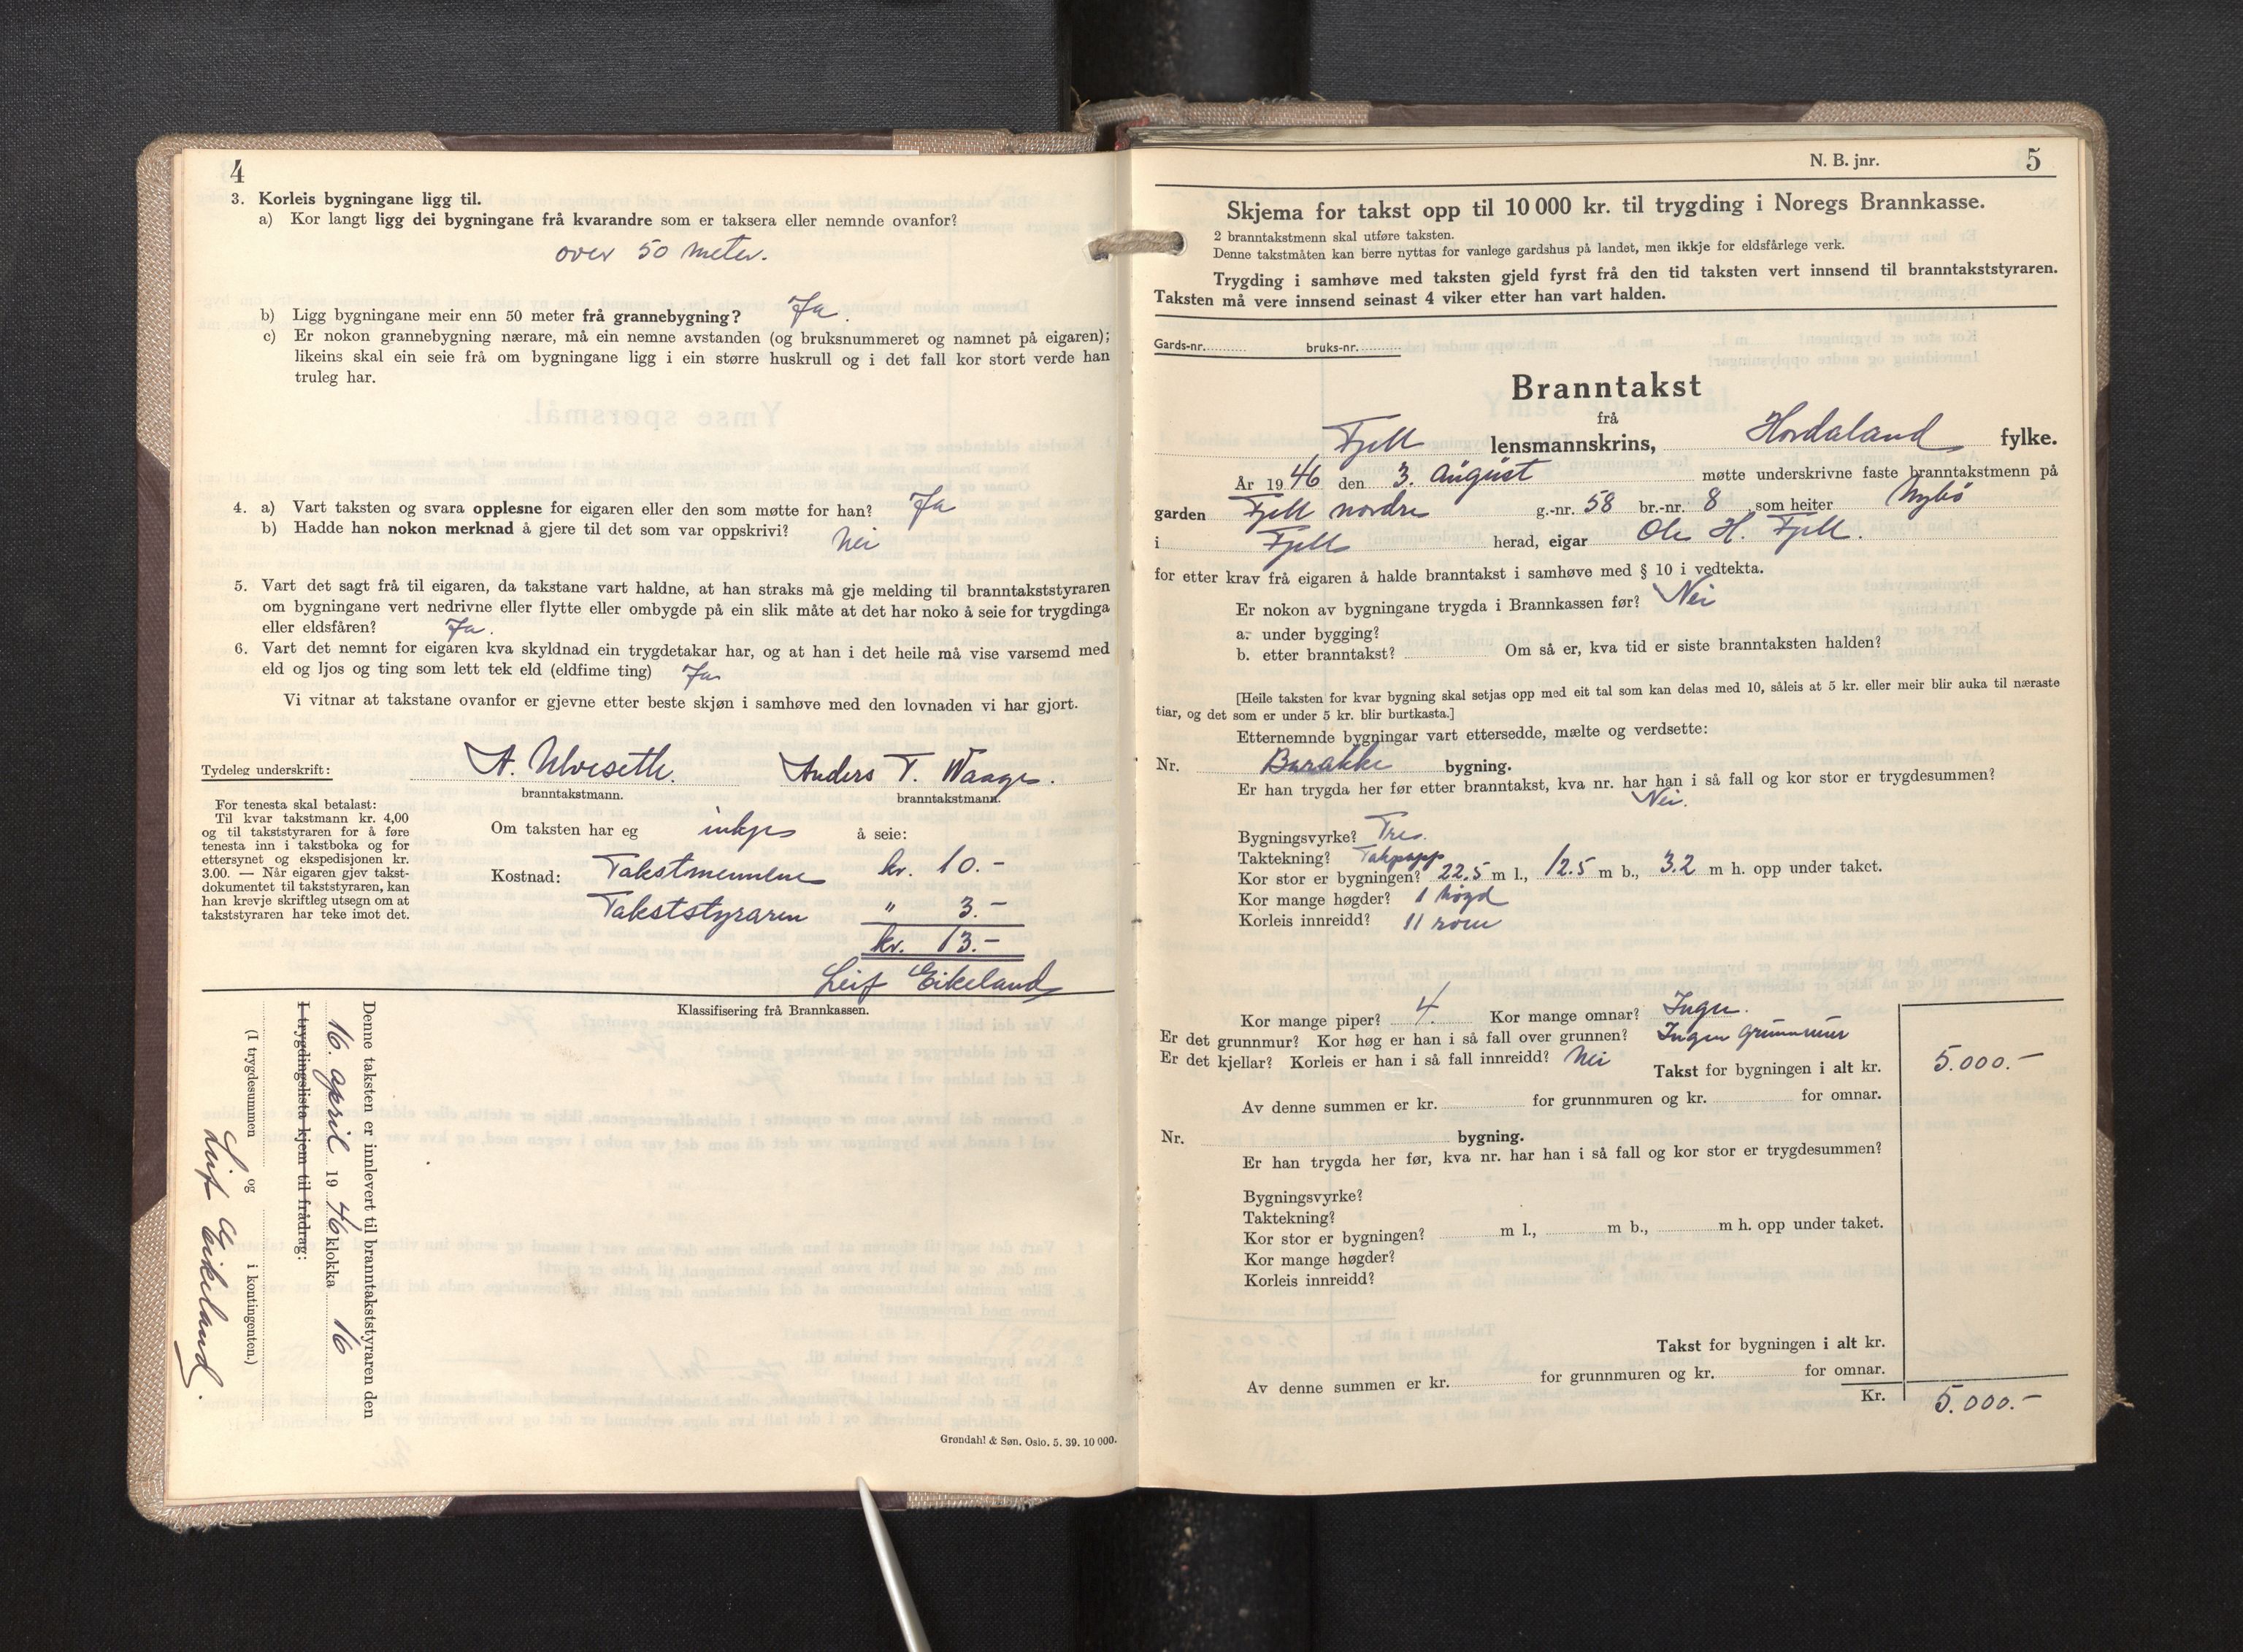 4
3. Korleis bygningane ligg til.
a) Kor langt ligg dei bygningane frå kvarandre som er taksera eller nemnde ovanfor?
over 50 meter.
b) Ligg bygningane meir enn 50 meter frå grannebygning? Ja.
c) Er nokon grannebygning nærare, må ein nemne avstanden (og bruksnummeret og namnet på eigaren);
likeins skal ein seie frå om bygningane ligg i ein større huskrull og i det fall kor stort verde han
truleg har.
4. a) Vart taksten og svara opplesne for eigaren eller den som møtte for han? Ja
b) Hadde han nokon merknad å gjere til det som var oppskrivi? Nei
5. Vart det sagt frå til eigaren, da takstane vart haldne, at han straks må gje melding til branntakststyraren
om bygningane vert nedrivne eller flytte eller ombygde på ein slik måte at det har noko å seie for trygdinga
eller eldsfåren? Ja.
6. Vart det nemnt for eigaren kva skyldnad ein trygdetakar har, og at han i det heile må vise varsemd med
eld og ljos og ting som lett tek eld (eldfime ting) Ja
Vi vitnar at takstane ovanfor er gjevne etter beste skjøn i samhøve med den lovnaden vi har gjort.
Tydeleg underskrift: A. Ulvesetth. Anders T. Waage.
branntakstmann. branntakstmann.
For tenesta skal betalast:
Til kvar takstmann kr. 4,00
og til takststyraren for å føre
tenesta inn i takstboka og for
ettersynet og ekspedisjonen kr.
3.00. — Når eigaren gjev takst-
dokumentet til takststyraren, kan
han krevje skriftleg utsegn om at
takststyraren har teke imot det.
Om taksten har eg inkje å seie:
Kostnad: Takstmennene kr. 10.-
Takststyraren " 3.-
kr. 13.-
Leif Eikeland
Klassifisering frå Brannkassen.
Denne taksten er innlevert til branntakststyraren den
16. april 1946 klokka 16
I trygdingslista kjem til frådrag:
(I trygdesummen og i kontingenten.)
Leif Eikeland.
Grøndahl & Søn. Oslo. 5. 39. 10 000.
N. B. jnr. 5
Skjema for takst opp til 10 000 kr. til trygding i Noregs Brannkasse.
2 branntakstmenn skal utføre taksten.
Denne takstmåten kan berre nyttas for vanlege gardshus på landet, men ikkje for eldsfårlege verk.
Trygding i samhøve med taksten gjeld fyrst frå den tid taksten vert innsend til branntakststyraren.
Taksten må vere innsend seinast 4 viker etter han vart halden.
Gards-nr. bruks-nr.
Branntakst
frå
Fjell lensmannskrins, Hordaland fylke.
År 1946 den 3. august møtte underskrivne faste branntakstmenn på
garden Fjell nordre g.-nr. 58 br.-nr. 8 som heiter Nybö
i Fjell herad, eigar Ole H. Fjell.
for etter krav frå eigaren å halde branntakst i samhøve med § 10 i vedtekta.
Er nokon av bygningane trygda i Brannkassen før? Nei
a. under bygging?
b. etter branntakst? Om så er, kva tid er siste branntaksten halden?
[Heile taksten for kvar bygning skal setjas opp med eit tal som kan delas med 10, såleis at 5 kr. eller meir blir auka til næraste
tiar, og det som er under 5 kr. blir burtkasta.]
Etternemnde bygningar vart ettersedde, mælte og verdsette:
Nr. Barakke bygning.
Er han trygda her før etter branntakst, kva nr. har han i så fall og kor stor er trygdesummen?
Nei.
Bygningsvyrke? Tre.
Taktekning? Takpapp
Kor stor er bygningen? 22.5 m l., 12.5 m b., 3.2 m h. opp under taket.
Kor mange høgder? 1 högd
Korleis innreidd? 11 rom
Kor mange piper? 4. Kor mange omnar? Ingen.
Er det grunnmur? Kor høg er han i så fall over grunnen? Ingen grunnmur
Er det kjellar? Korleis er han i så fall innreidd? Nei
Takst for bygningen i alt kr. 5.000.-
Av denne summen er kr. for grunnmuren og kr. for omnar.
Nr. bygning.
Er han trygda her før, kva nr. har han i så fall og kor stor er trygdesummen?
Bygningsvyrke?
Taktekning?
Kor stor er bygningen? m l., m b., m h. opp under taket.
Kor mange høgder?
Korleis innreidd?
Takst for bygningen i alt kr.
Av denne summen er kr. for grunnmuren og kr. for omnar.
Kr. 5.000.-